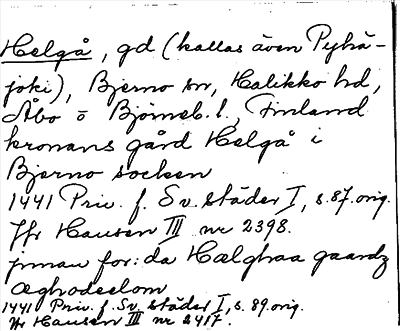 Helgå, gd (kallas även Pyhä-
joki), Bjerno sn, Halikko hd,
Åbo o Björneb. l., Finland
kronans gård Helgå i
Bjerno socken
1441 Priv. f. Sv. städer I, s. 87. orig.
Jfr Hausen III nr 2398.
innan for: da Hælghaa gaardz
æghodeelom
1441 Priv. f. Sv. städer I, s. 89. orig.
Jfr Hausen III nr 2417.